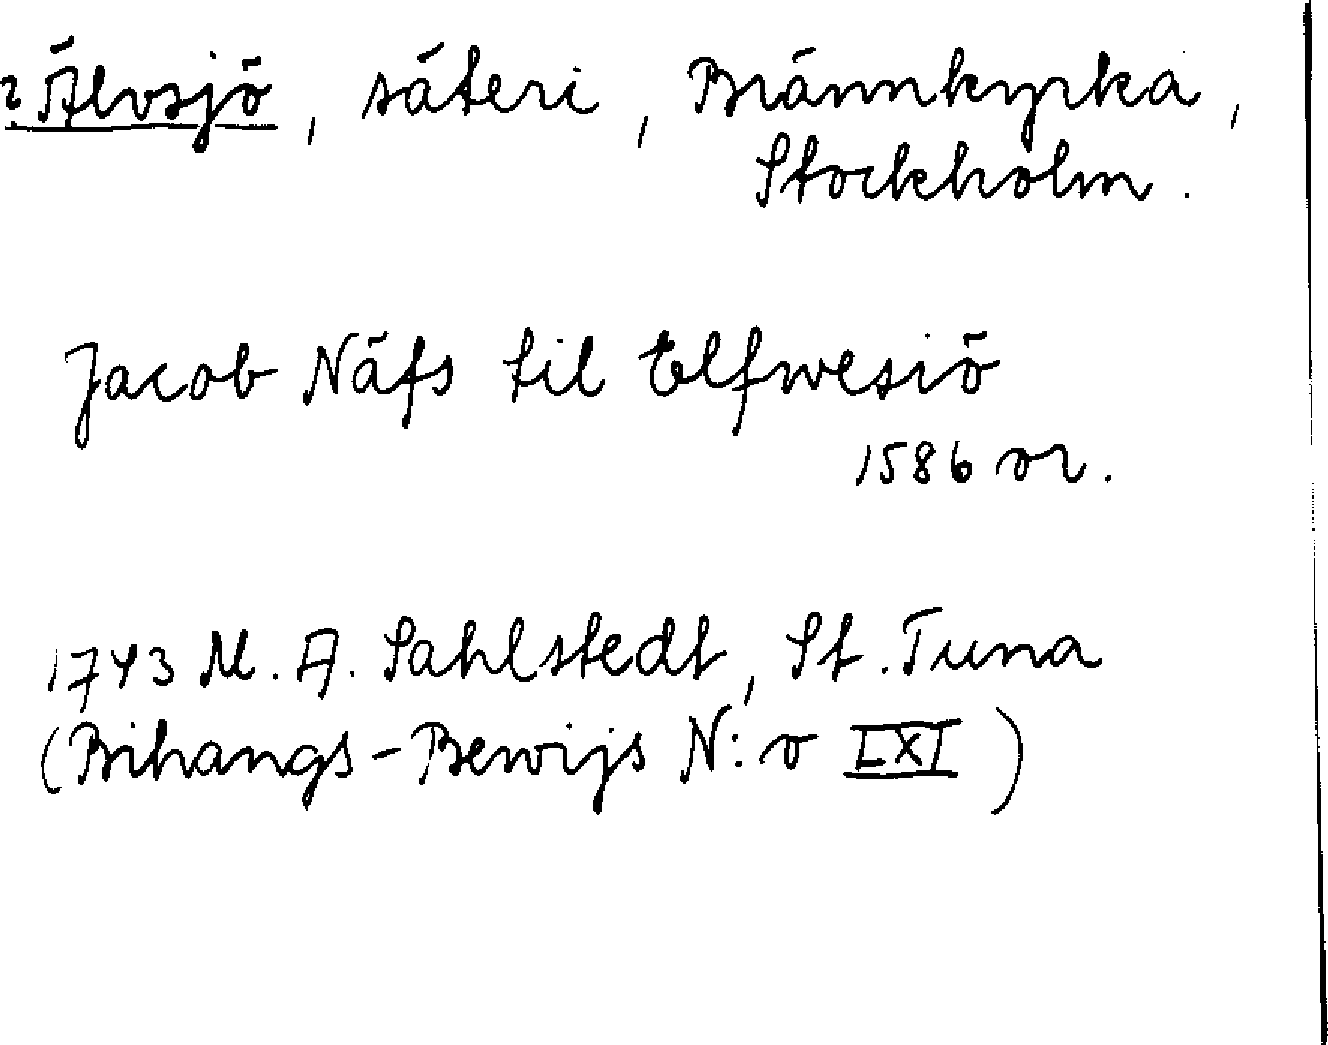 ? Älvsjö, säteri, Brännkyrka,
Stockholm.
Jacob Näfs til Elfwesiö
1586 or.
1743 M. A. Sahlstedt, St. Tuna
(Bihangs-Bewijs N:o LXI)